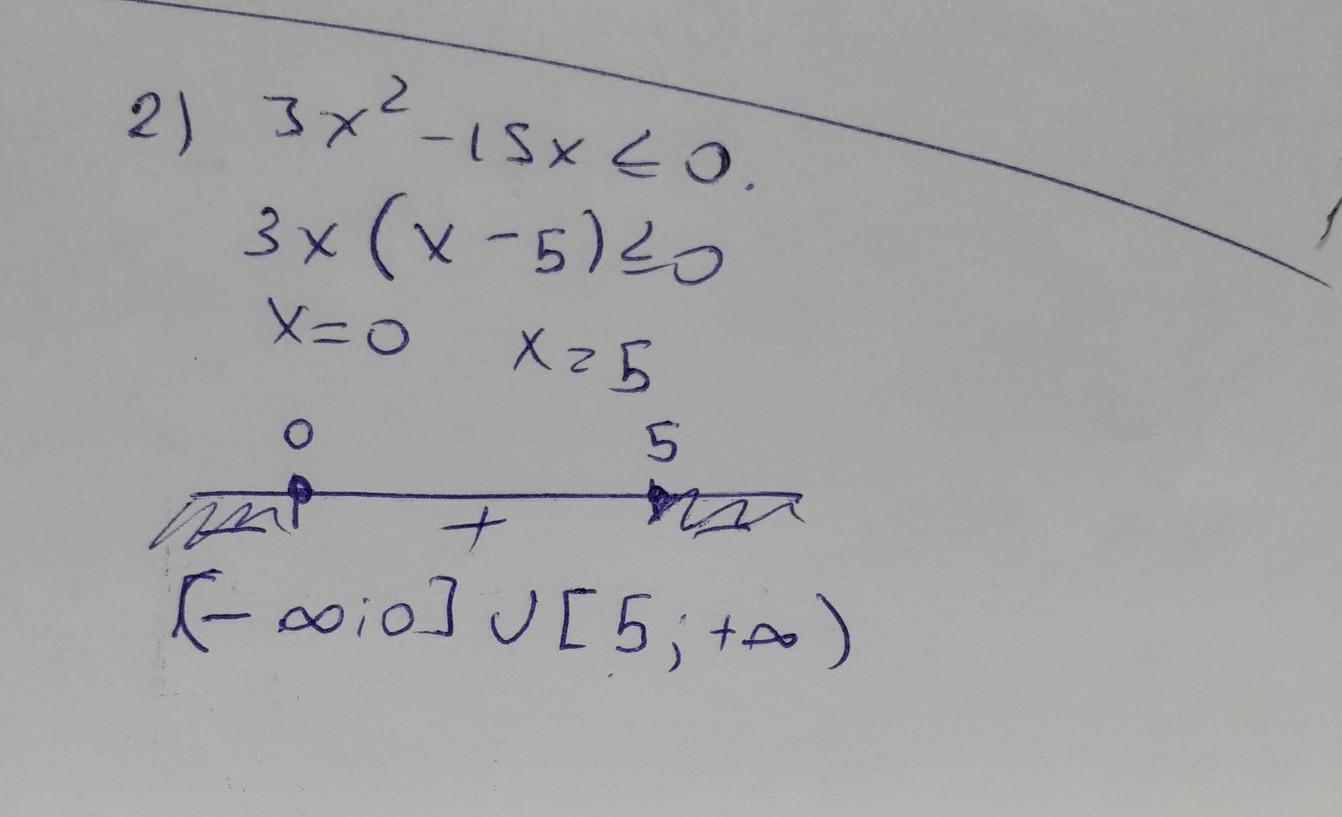 2) 3x² -15x ≤ 0.
3x (x - 5) ≤ 0
x = 0 x = 5
0 5
+
(- ∞; 0] ∪ [5; +∞)